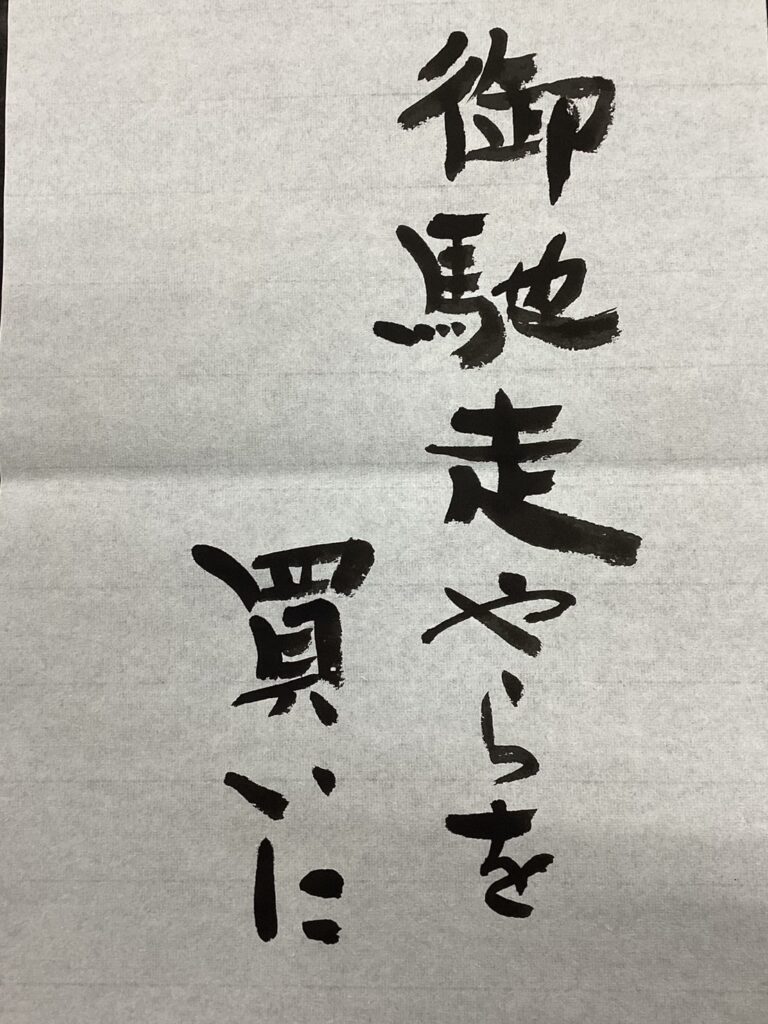 御馳走やらを
買いに